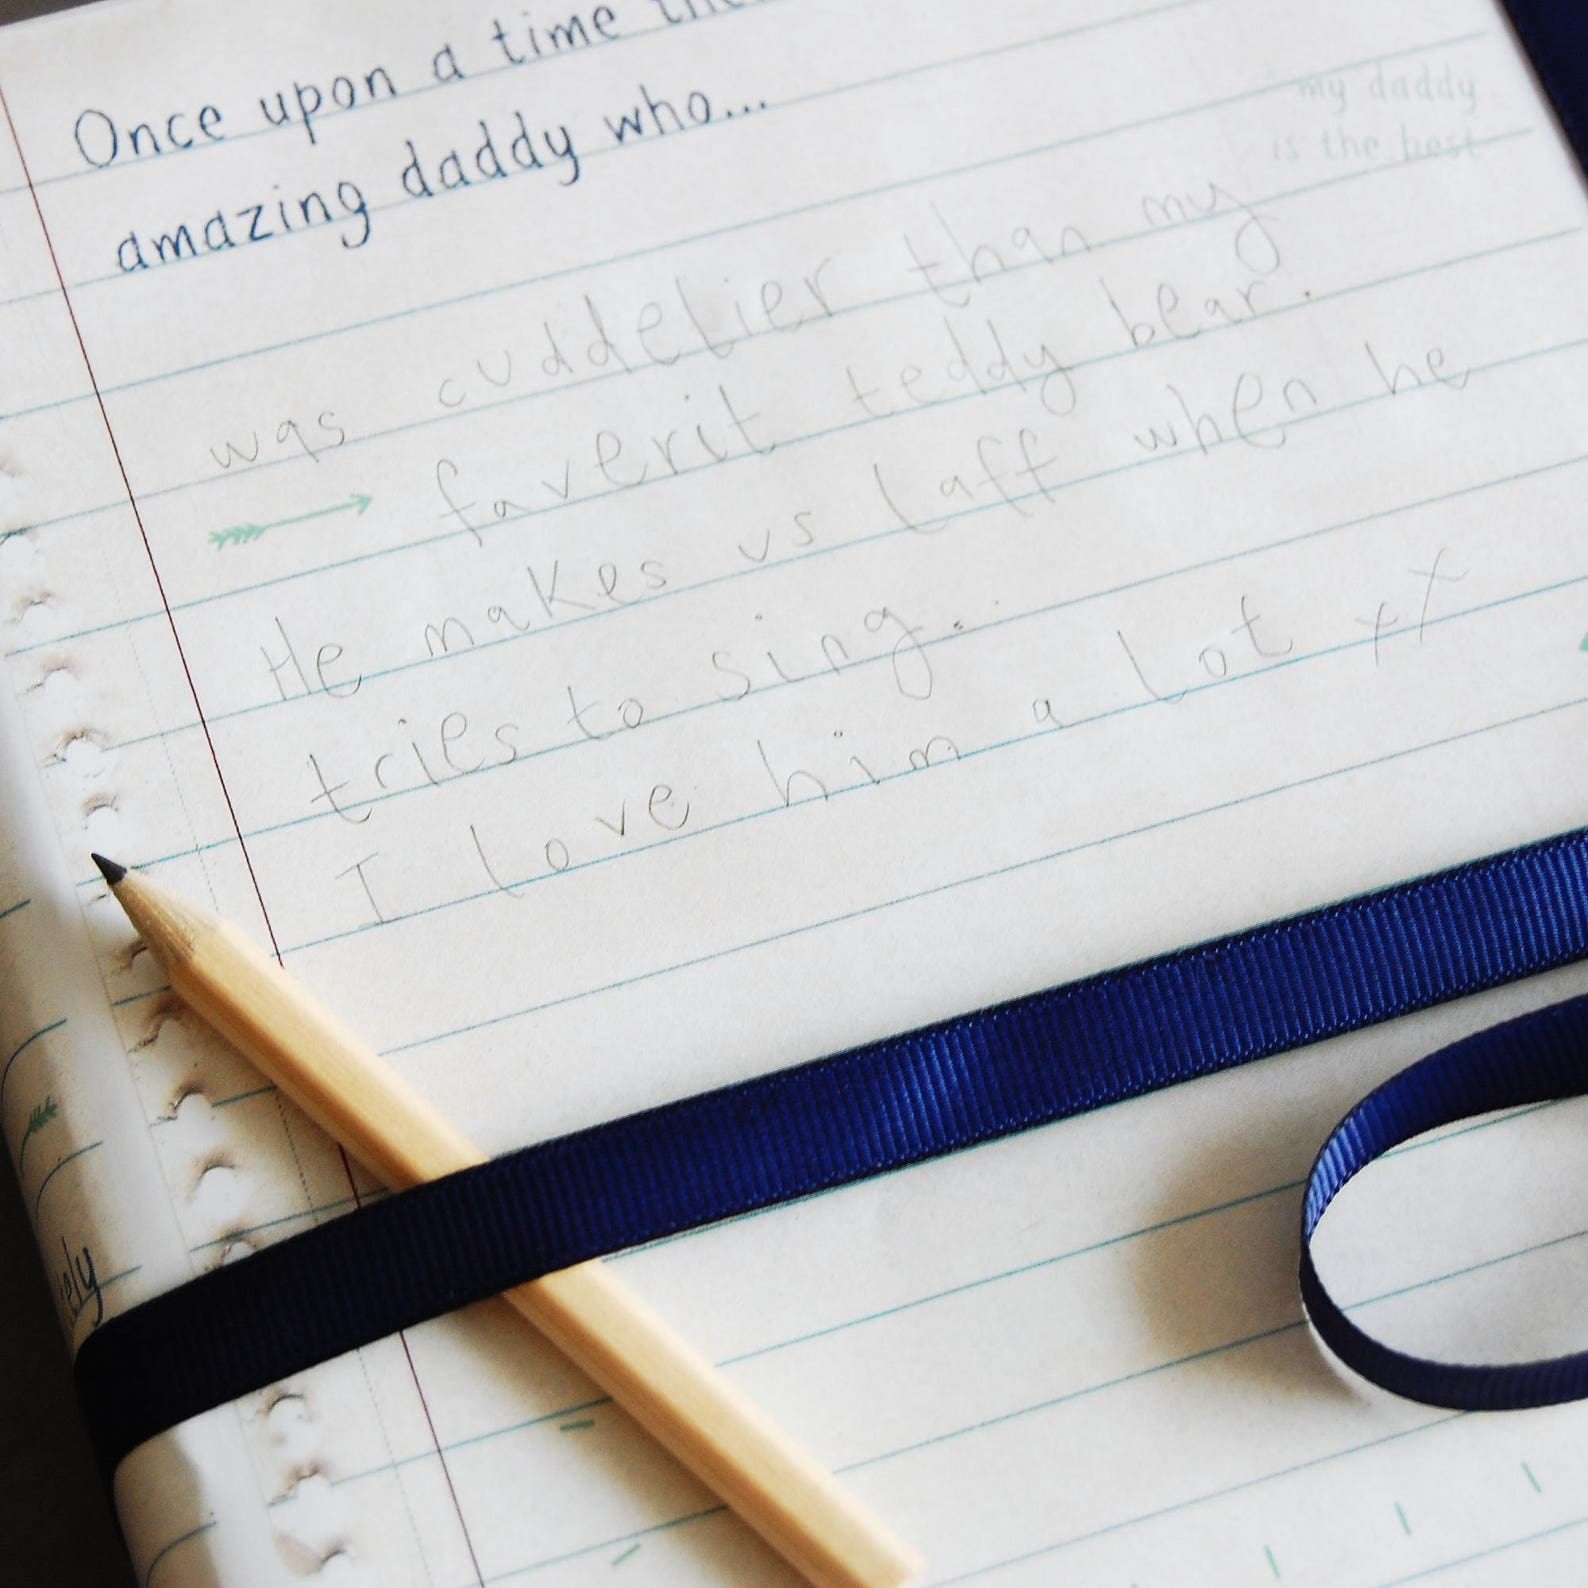 Once upon a time
amazing daddy who...
my daddy
is the best
was cuddelier than my
faverit teddy bear.
He makes us laff when he
tries to sing.
I love him a lot xx